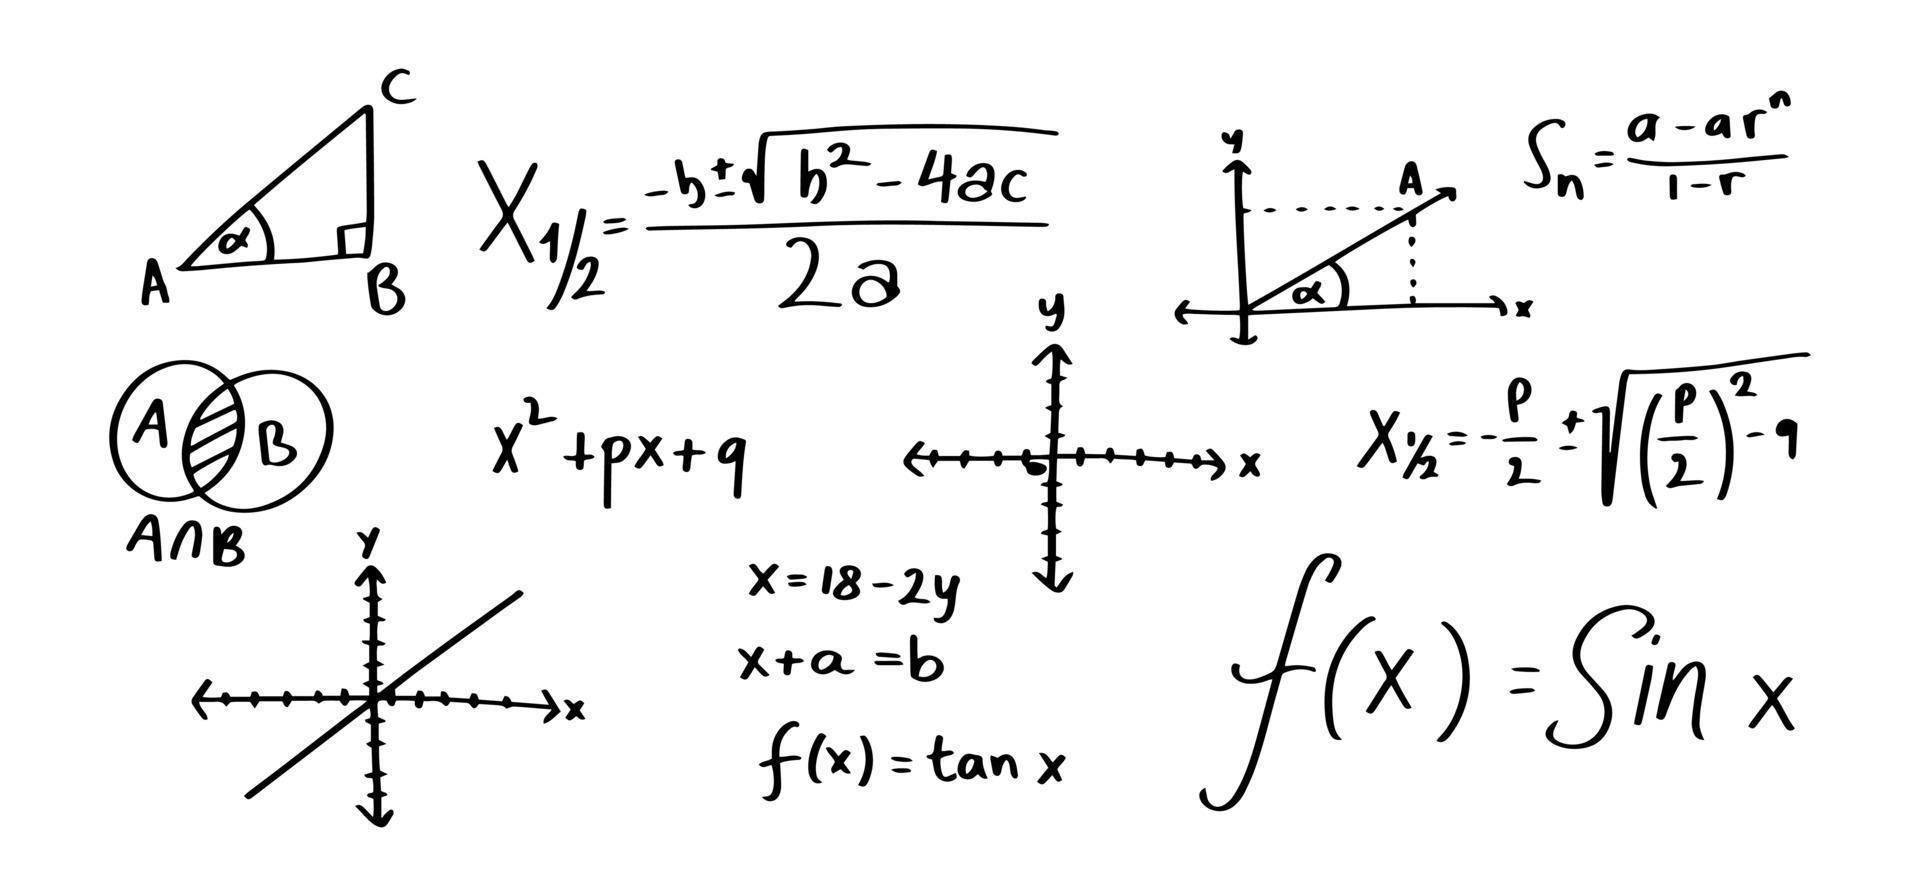 C
α
A
B
X1/2 = -b ± √(b² - 4ac) / 2a
y
A
α
x
Sn = (a - arⁿ) / (1 - r)
A
B
A∩B
x² + px + q
y
x
X1/2 = - p/2 ± √((p/2)² - q)
Y
x
x = 18 - 2y
x + a = b
f(x) = tan x
f(x) = Sin x